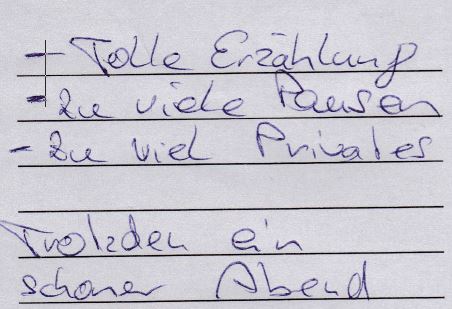 - Tolle Erzählung
- zu viele Pausen
- zu viel Privates
Trotzden ein
schöner Abend